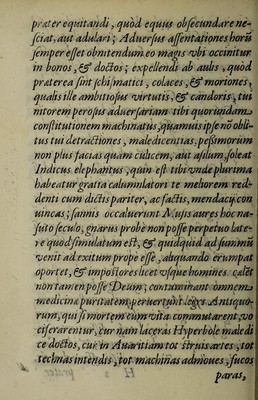 præter equitandi, quòd equus obsecundare ne-
sciat, aut adulari; Aduersus assentationes horũ
semper esset obnitendum eo magis vbi occinitur
in bonos, & doctos; expellendi ab aulis, quòd
præterea sint schismatici, colaces, & moriones,
qualis ille ambitiosus virtutis, & candoris, tui
nitorem perosus aduersarium tibi quorundam
constitutionem machinatus, quamuis ipse nõ obli-
tus tui detractiones, maledicentias, pessimorum
non plus facias quàm culicem, aut asilum, soleat
Indicus elephantus, quin est tibi vnde plurima
habeatur gratia calumniatori te meliorem red-
denti cum dictis pariter, ac factis, mendacij con
uincas; sannis occaluerunt aures hoc na-
suto seculo, gnarus probè non posse perpetuò late-
re quod simulatum est, & quidquid ad summũ
venit ad exitum propè esse, aliquando erumpat
oportet, & impostores licet vsque homines calẽt
non tamen posse Deum; contaminant omnem
medicinæ puritatem, peruertunt leges Antiquo-
rum, qui si mortem cum vita commutarent, vo
ciferarentur, cur nam laceras Hyperbole maledi
ce doctos, cur in Auaritiam tot struis artes, tot
technas intendis, tot machinas admoues, fucos
paras,